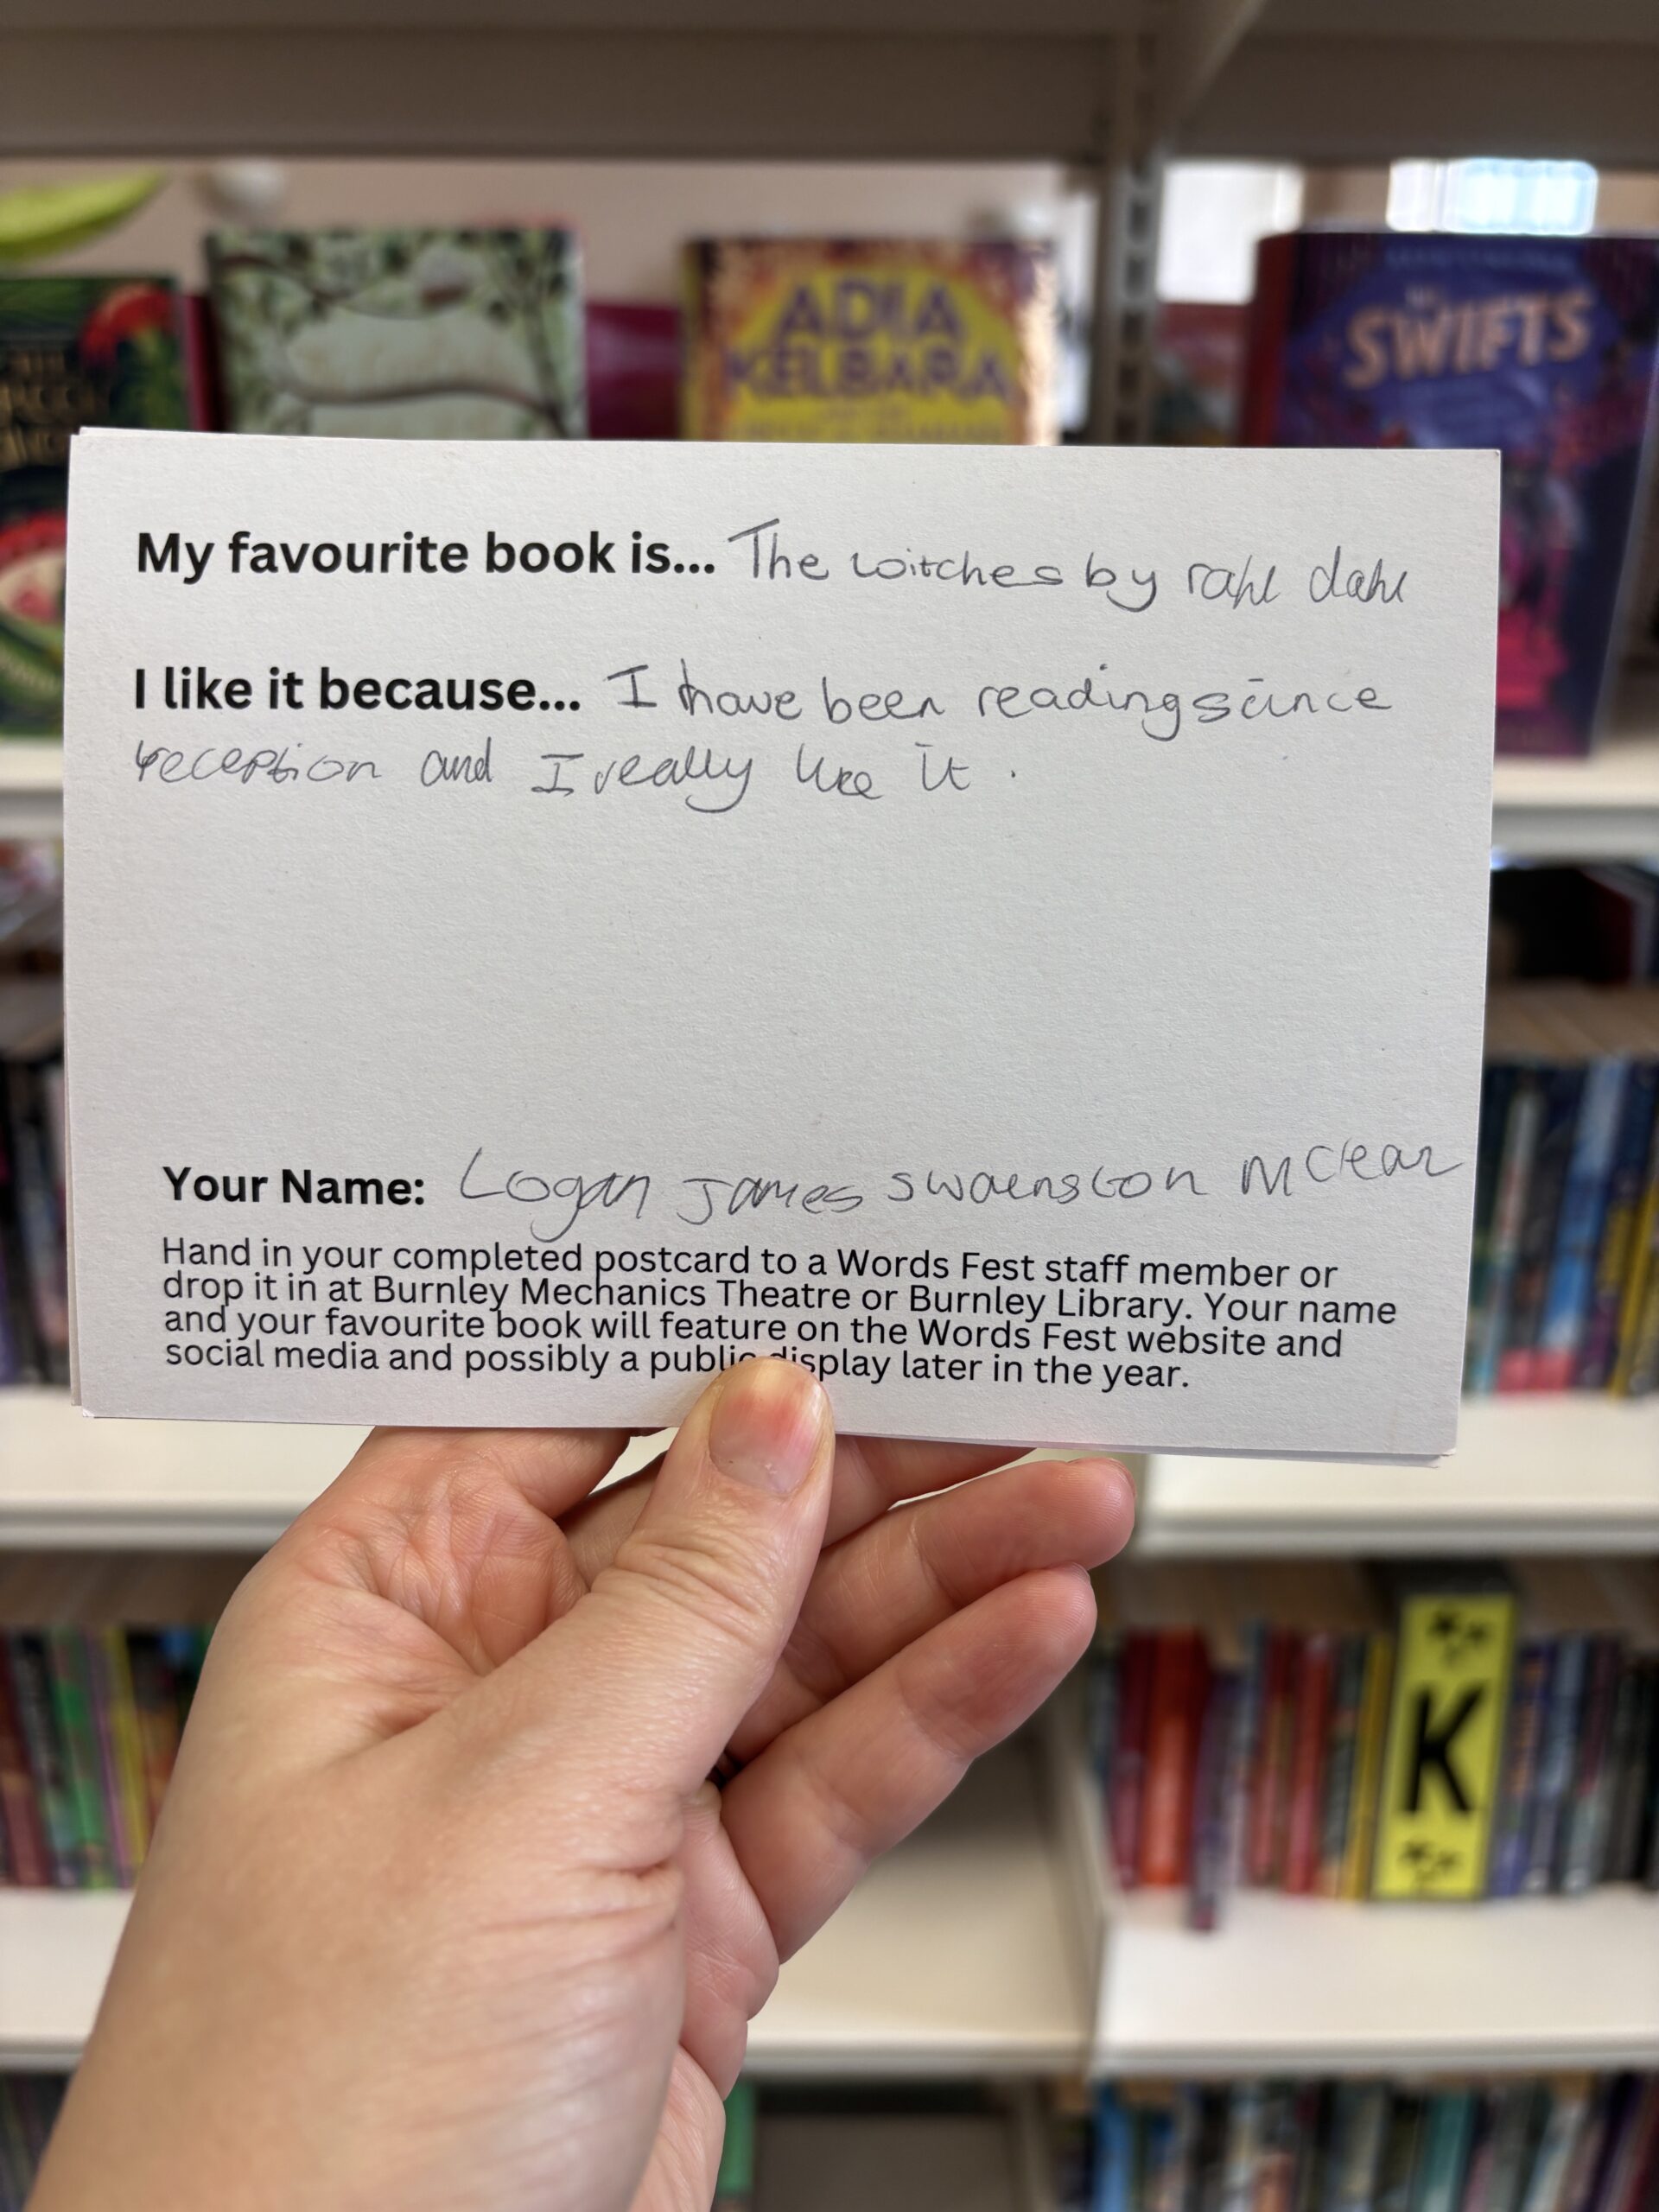 ADIA
KELBARA
SWIFTS
My favourite book is... The witches by rahl dahl
I like it because... I have been reading since
reception and I really like it .
Your Name: Logan James swaenston McLear
Hand in your completed postcard to a Words Fest staff member or
drop it in at Burnley Mechanics Theatre or Burnley Library. Your name
and your favourite book will feature on the Words Fest website and
social media and possibly a public display later in the year.
K